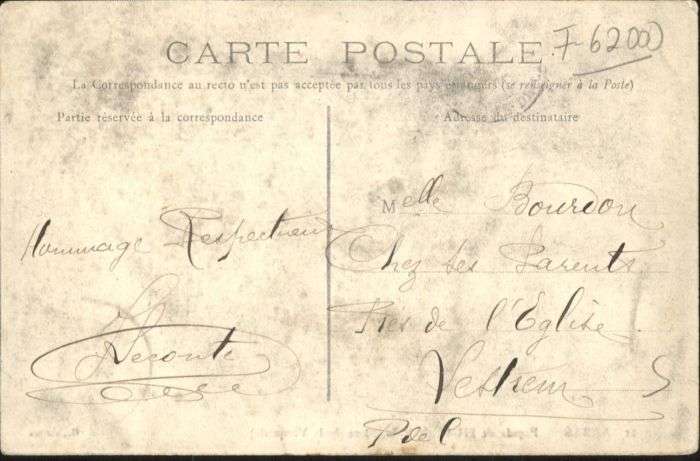 CARTE POSTALE
F-62000
La Correspondance au recto n'est pas acceptée par tous les pays étrangers (se renseigner à la Poste)
Partie réservée à la correspondance
Adresse du destinataire
Hommage Respectueux
Leconte
Melle Bourdon
Chez Ses Parents
Près de l'Eglise
P de C